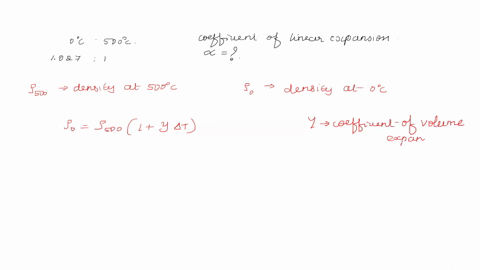 0°C : 500°C.
1.027 : 1
coeffient of linear expansion.
α = ?
ρ500 → density at 500°C
ρ0 → density at 0°C
ρ0 = ρ500 (1 + γ ΔT)
γ → coeffient of volume
expan